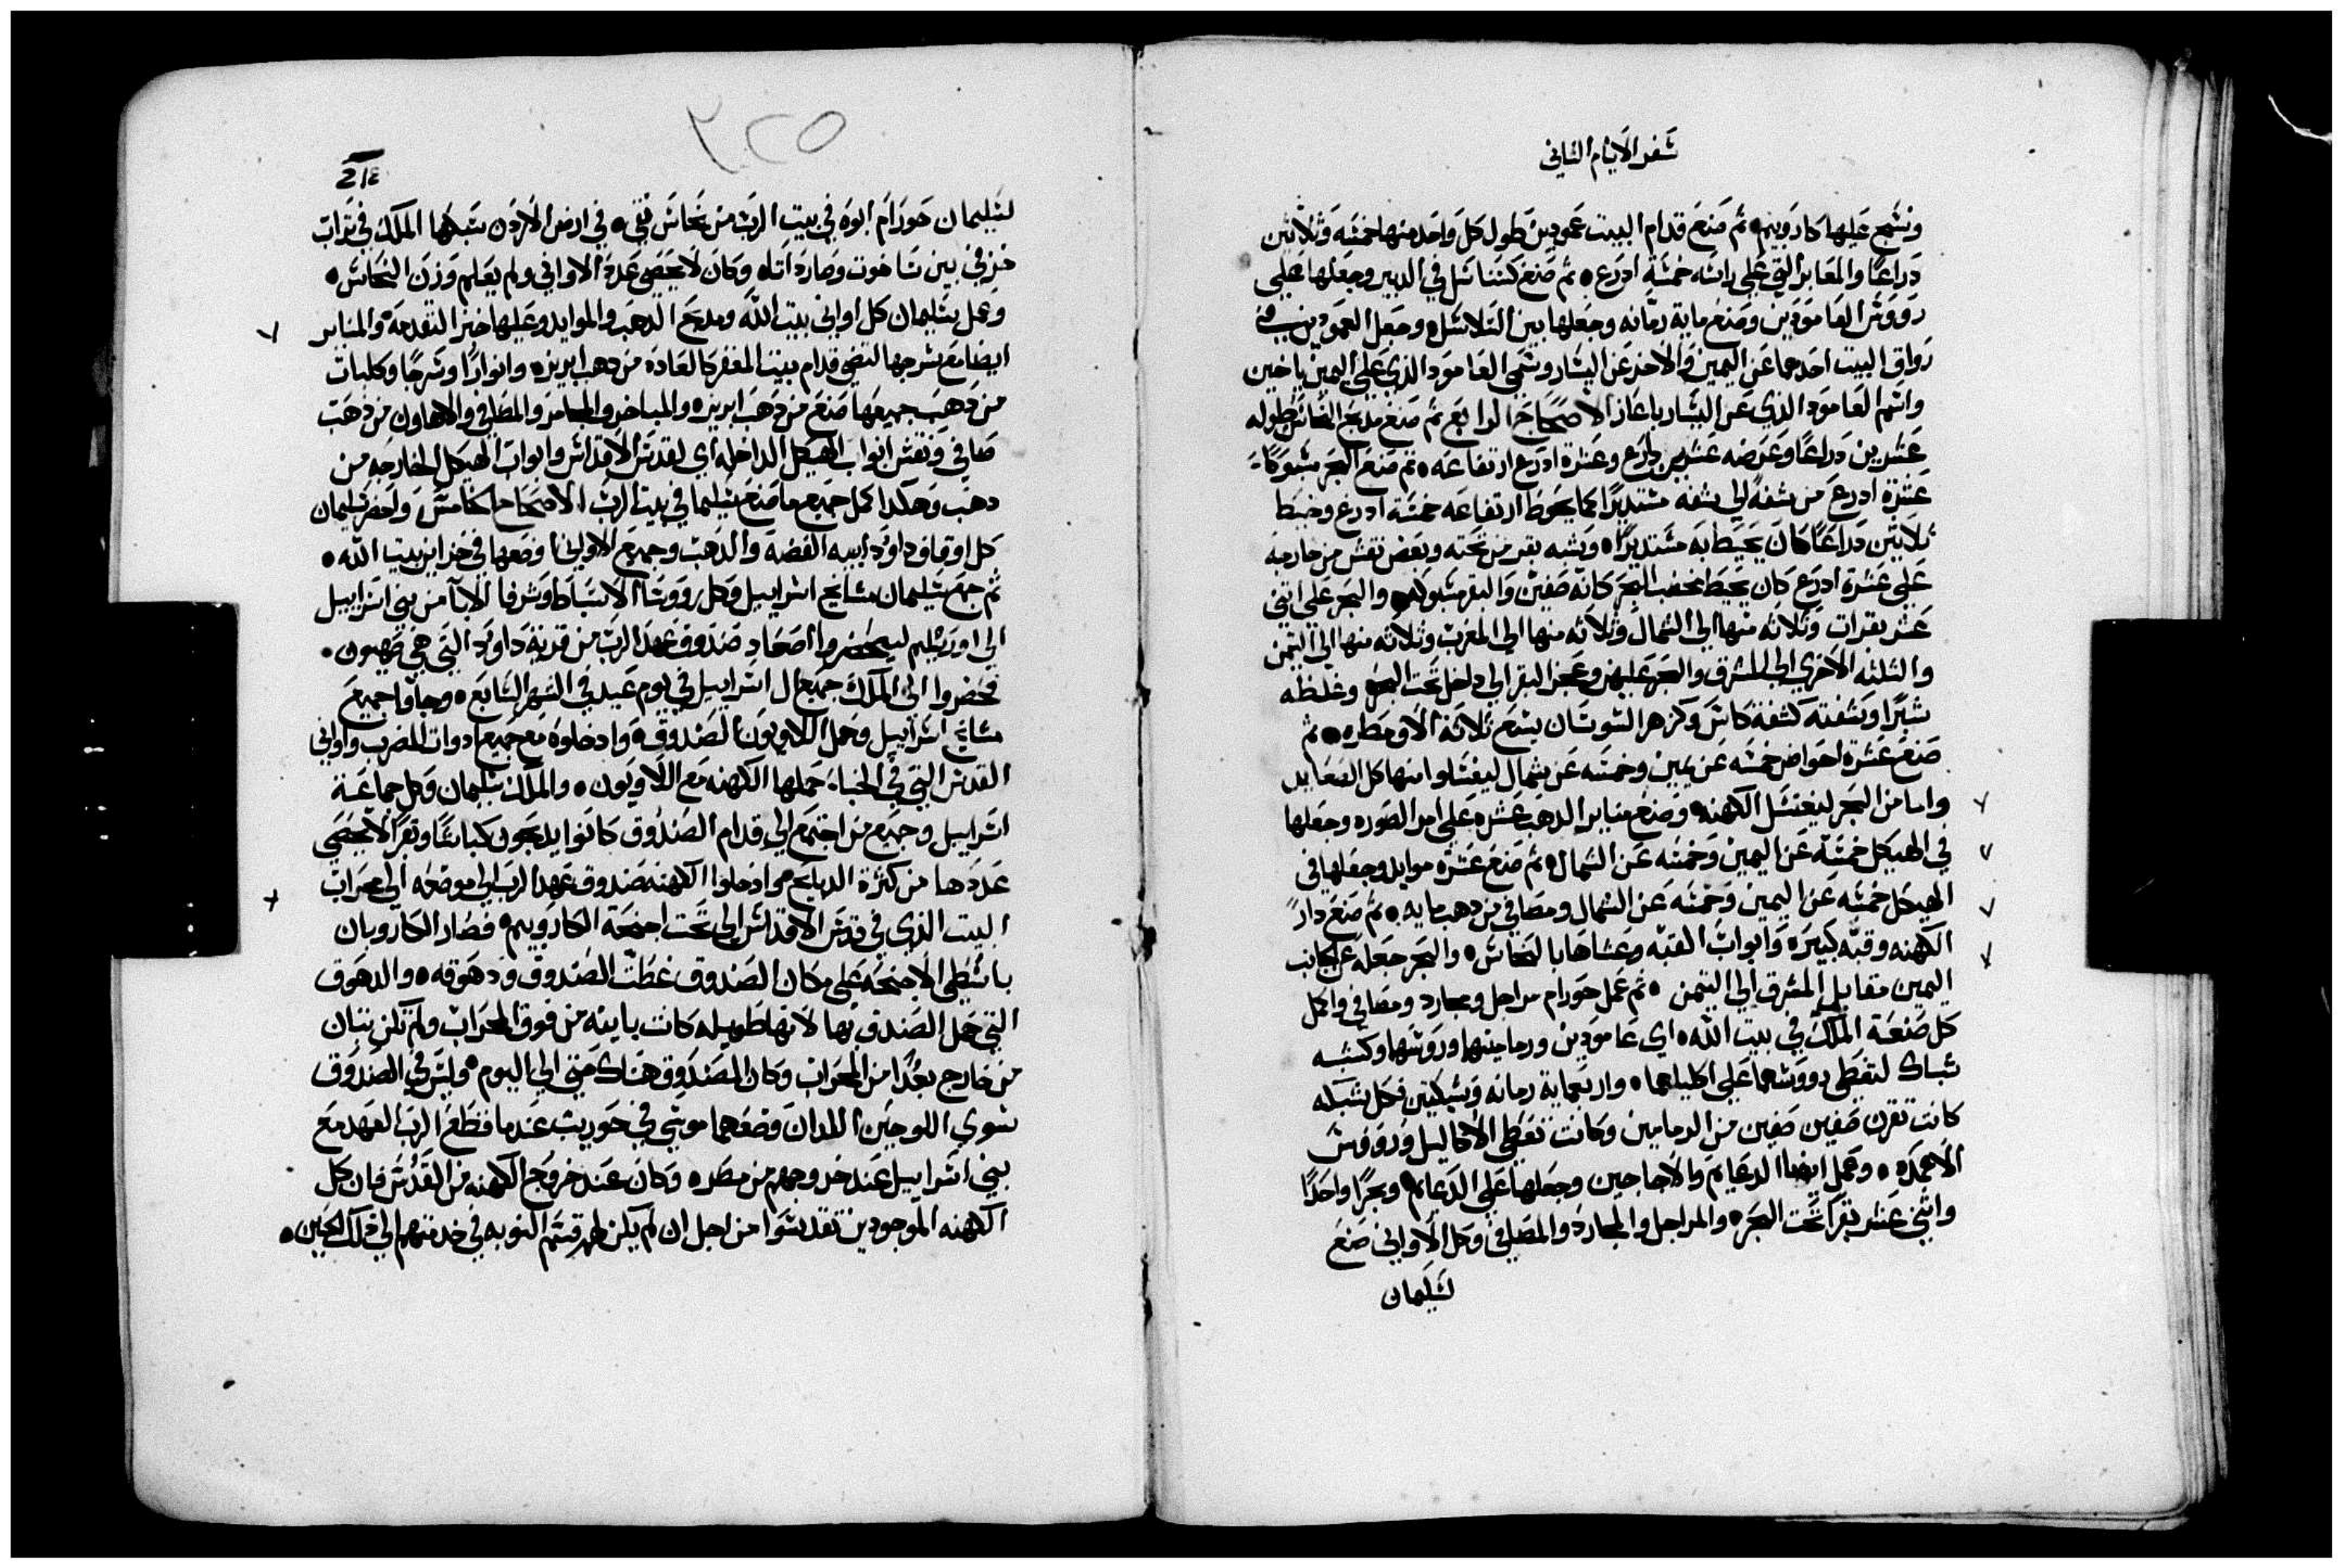 سفر الايام الثاني
ونسج عليها كاروبيم ثم صنع قدام البيت عمودين طول كل واحد منهما خمسه وثلاثين
دراعا والمعابر التي على راسه خمسة ادرع ثم صنع كسناسل في الدبير وجعلها على
رووس العامودين وصنع ماية رمانه وجعلها بين السلاسل وجعل العمودين في
رواق البيت احدهما عن اليمين والاخر عن اليسار وسمي العامود الذي على اليمين ياخين
واسم العامود الذي عن اليسار باعاز الاصحاح الرابع ثم صنع مدبح النحاس طوله
عشرين دراعا وعرضه عشرين دراع وعشرة ادرع ارتفاعه ثم صنع البحر مسبوكا
عشرة ادرع من شفة الي شفه مستديرا كما يحوط ارتفاعه خمسة ادرع وخيط
ثلاثين دراعا كان يحيط به مستديرا وشبه بقر من تحته وبعض نقش من خارجه
على عشرة ادرع كان يحيط بحقب البحر كانه صفين والبقر مسبوكه والبحر على اثني
عشر بقرات وثلاثه منها الي الشمال وثلاثه منها الي المغرب وثلاثه منها الي التيمن
والثلثه الاخري الي المشرق والبحر عليهن وعجز البقر الي داخل تحت البحر وغلظه
شبرا وشفته كشفة كاس وكزهر السوسان يسع ثلاثة الاف مطره ثم
صنع عشرة احواض خمسه عن يمين وخمسه عن شمال ليغسلوا منها كل الصعايد
واما من البحر ليغتسل الكهنه وصنع مناير الدهب عشره على امر الصوره وجعلها
في الهيكل خمسه عن اليمين وخمسه عن الشمال ثم صنع عشرة موايد وجعلها في
الهيكل خمسه عن اليمين وخمسه عن الشمال ومصافي من دهب مايه ثم صنع دار
الكهنه وقبه كبيره وابواب القبه وغشاها بالنحاس والبحر جعله عن الجانب
اليمين مقابل المشرق الي التيمن ثم عمل حورام مراجل ومجارد ومصافي واكمل
كل صنعة الملك في بيت الله اي عامودين ورمامنها وروسها وكشبه
شباك لتغطي رووسهما على اكليلهما واربعماية رمانه وشبكتين فكل شبكه
كانت تقرن صفين صفين من الرمامين وكانت تغطي الاكاليل ورووس
الاعمده وعمل ايضا الدعايم والاجاجين وجعلها على الدعايم وبحرا واحدا
واثني عشر بقرا تحت البحر والمراجل والمجارد والمصافي وكل الاواني صنع
لسليمان
٢٢٥
لسليمان حورام ابوه في بيت الرب من نحاس نقي في ارض الاردن سبكها الملك في تراب
خزفي بين ساخوت وصاردااتا وكان لا يحصى عدة الاواني ولم يعلم وزن النحاس
وعمل سليمان كل اواني بيت الله ومدبح الدهب والموايد وعليها خبز التقدمة والمناير
ايضا مع سرجها لتضي قدام بيت المغفر كالعاده من دهب ابريز وانوارا وسرجا وكلبات
من دهب جميعها صنع من دهب ابريز والمباخر والمجامر والمصافي والاهاون من دهب
صافي ونقش ابواب الهيكل الداخله اي لقدس الاقداس وابواب الهيكل الخارجه من
دهب وهكدا كمل جميع ما صنع سليما في بيت الرب الاصحاح الخامس واحضر سليمان
كل اوقاف داود ابيه الفضة والدهب وجميع الاواني وضعها في خزاين بيت الله
ثم جمع سليمان مشايخ اسراييل وكل رووسا الاسباط وشرفا الابا من بني اسراييل
الي اورشليم ليحضروا اصعاد صندوق عهد الرب من قرية داود التي هي صهيون
فحضروا الي الملك جميع ال اسراييل في يوم عيد في الشهر السابع وجاوا جميع
مشايخ اسراييل وحمل اللاويون الصندوق وادخلوه مع جميع ادوات المضرب واواني
القدس التي في الخبا حملها الكهنه مع اللاويون والملك سليمان وكل جماعة
اسراييل وجميع من اجتمع الي قدام الصندوق كانوا يدبحون كباشا وبقرا لا يحصى
عددها من كثرة الدبايح وادخلوا الكهنه صندوق عهد الرب الي موضعه الي محراب
البيت الذي في قدس الاقداس الي تحت اجنحة الكاروبيم فصار الكاروبان
باسطي الاجنحه على مكان الصندوق غطت الصندوق ودهوقه والدهوق
التي حمل الصندق بها لانها طويله كانت باينه من فوق المحراب ولم تكن تبان
من خارج بعدا من المحراب وكان الصندوق هناك حتى الي اليوم وليس في الصندوق
سوي اللوحين اللدان وضعهما موسي في حوريب عندما قطع الرب العهد مع
بني اسراييل عند خروجهم من مصر وكان عند خروج الكهنه من القدس فان كل
الكهنه الموجودين تقدسوا من اجل ان لم يكن لهم قسم النوبه في خدمتهم الي دلك الحين